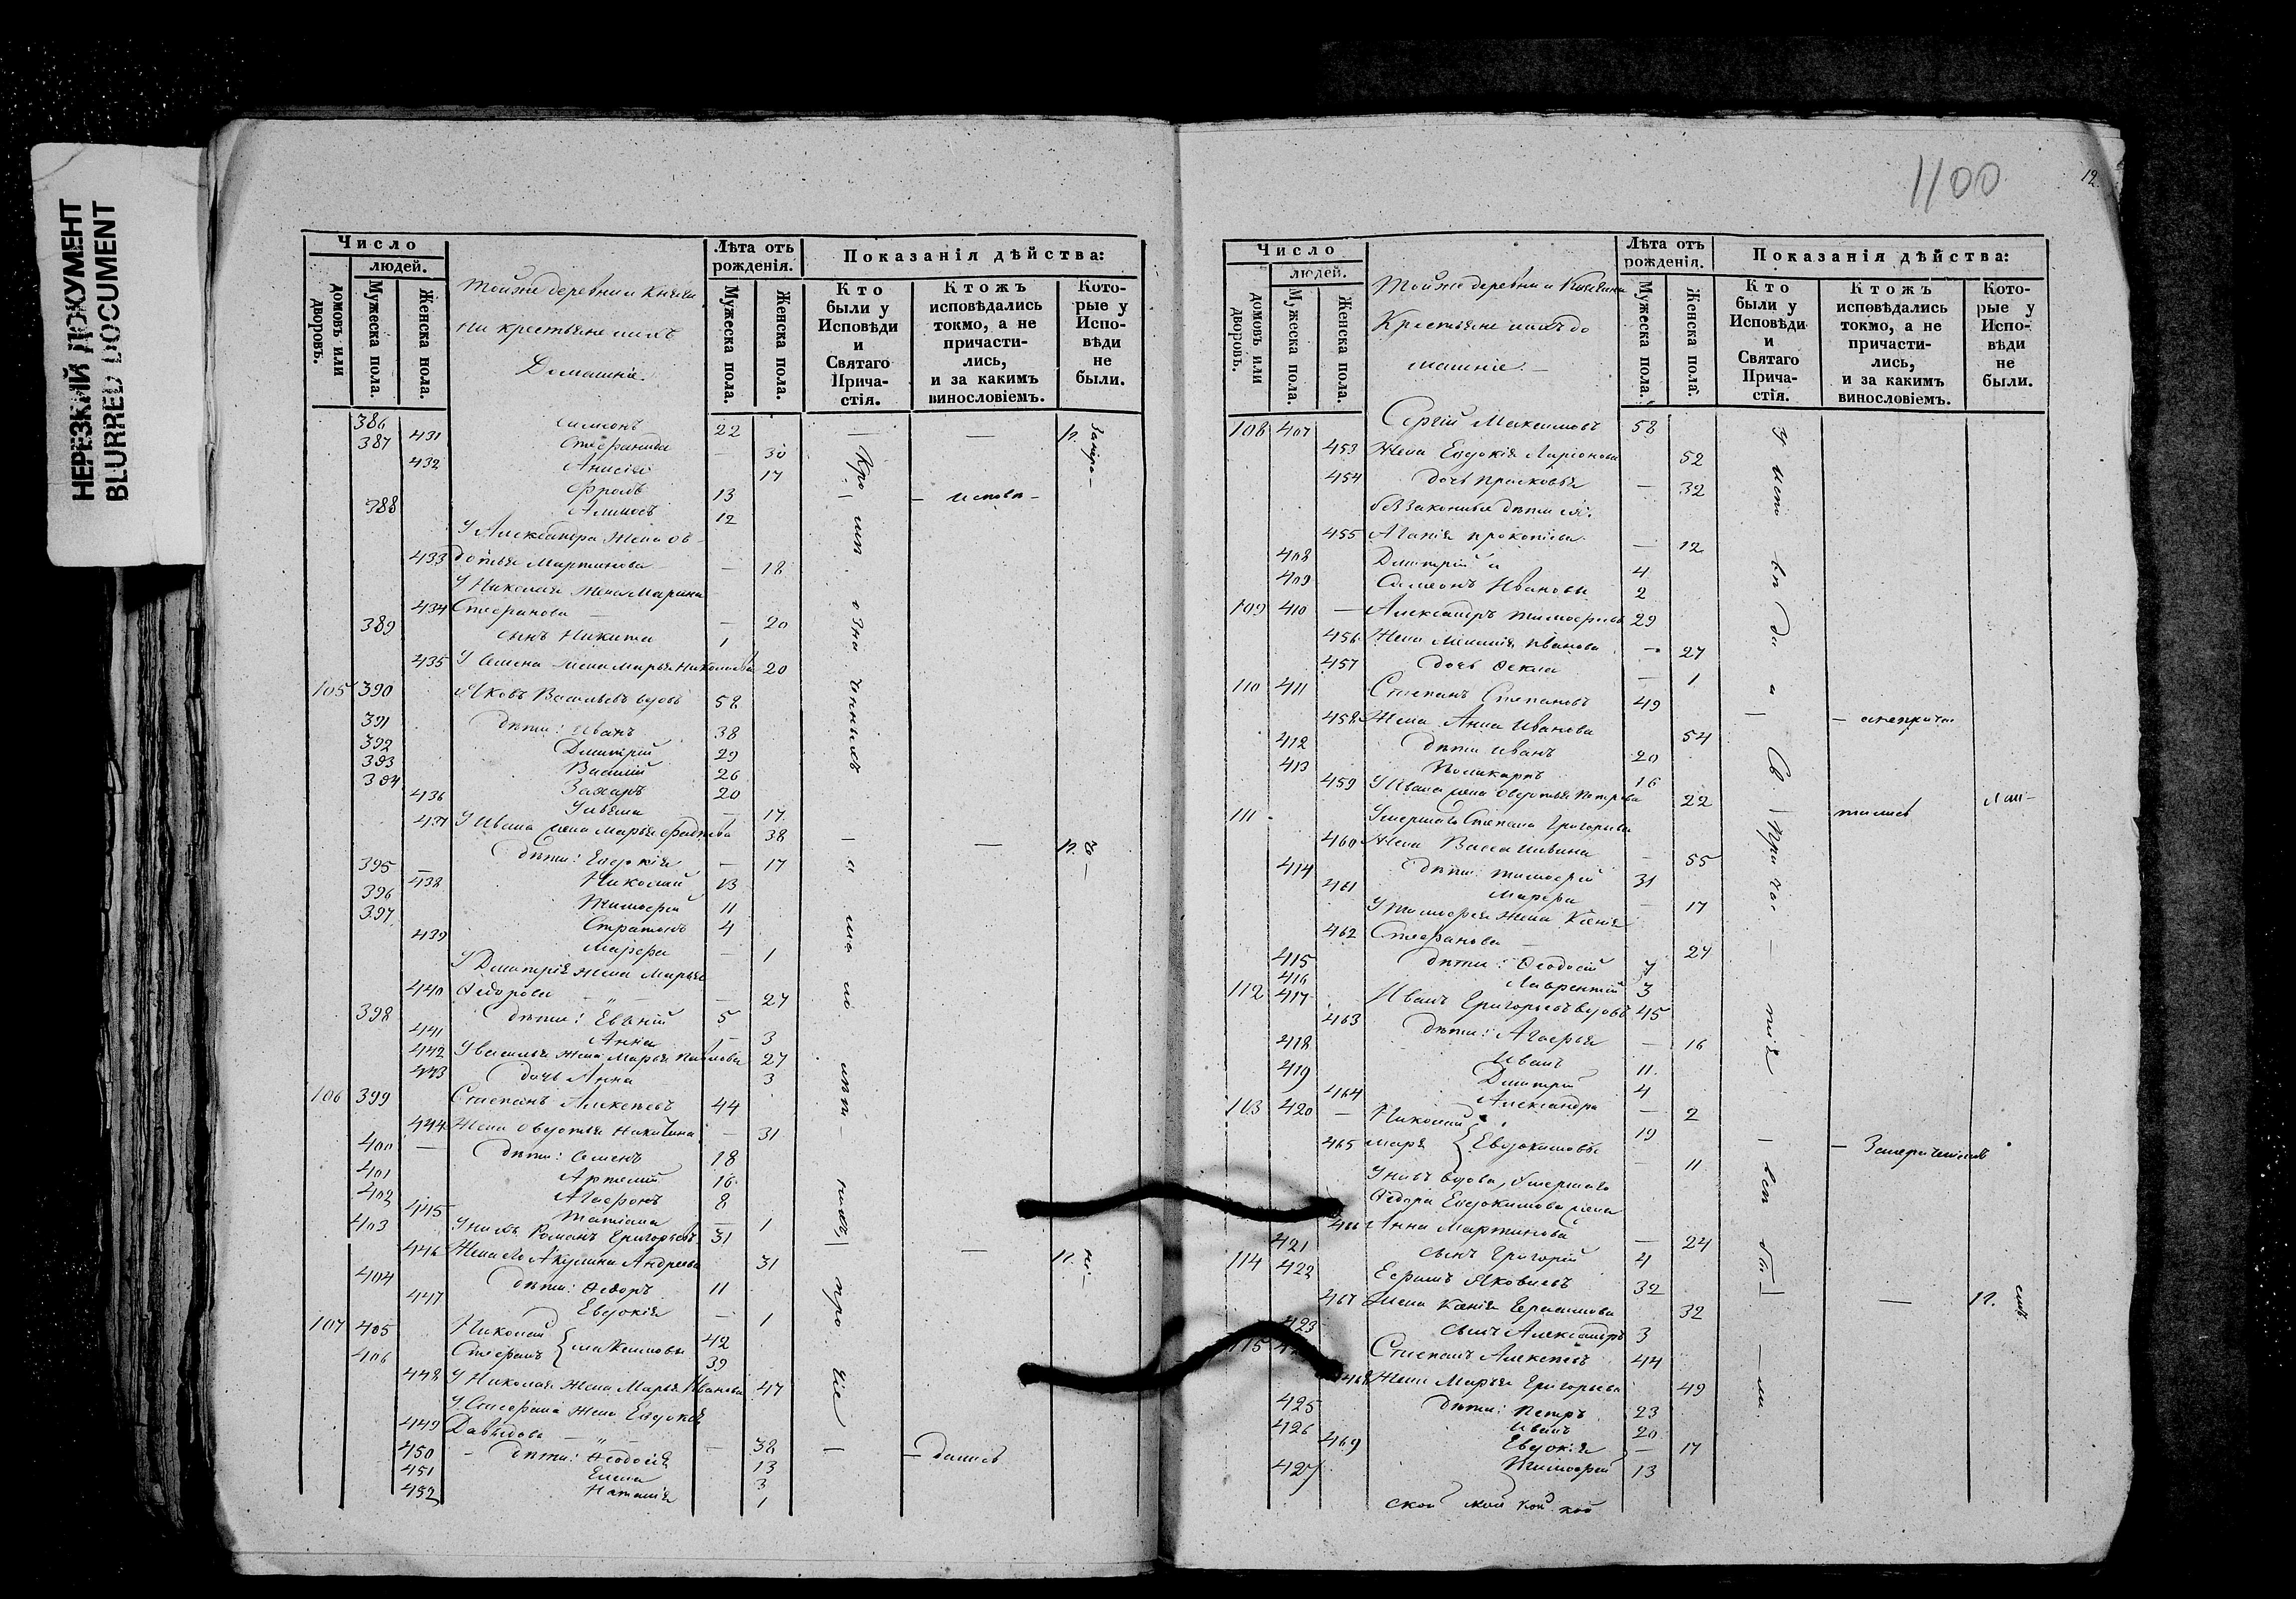 НЕРЕЗКИЙ ДОКУМЕНТ
BLURRED DOCUMENT
Число
людей.
домовъ или дворовъ.
Мужеска пола.
Женска пола.
Тойже деревни
ни крестьяне ихъ
Домашніе.
Лѣта отъ рожденія.
Мужеска пола.
Женска пола.
Показанія дѣйства:
Кто были у Исповѣди и Святаго Прича- стія.
Ктожъ исповѣдались токмо, а не причасти- лись, и за какимъ винословіемъ.
Кото- рые у Испо- вѣди не были.
386 Симеонъ 22
387 431 Стефанида — 30
432 Анисія 17
Фролъ 13
388 12
У Александра жена Ов-
433 дотья Мартинова — 18
У Николая жена Марина
434 Стефанова — 20
389 сынъ Никита 1
435 У Семена жена Марья Николаева 20
105 390 Яковъ Васильевъ вдовъ 58
391 дѣти: Иванъ 38
392 Дмитрій 29
393 Василій 26
394 Захаръ 20
436 Ульяна — 17
437 У Ивана жена Марья 38
дѣти: Евдокія — 17
395 438 Николай 13
396 Тимофей 11
397 Стратонъ 4
439 Марфа — 1
У Дмитрія жена Марья
440 Федорова — 27
398 дѣти: Евѳимій 5
441 Анна — 3
442 У Василья жена Марья Павлова 27
443 дочь Анна 3
106 399 Степанъ Алексѣевъ 44
444 Жена Овдотья Никитина — 31
400 — дѣти: Семенъ 18
401 Артемій 16
402 Агафонъ 8
445 Татіана — 1
403 У нихъ Романъ Григорьевъ 31
446 Жена его Акулина Андреева 31
404 дѣти: Ѳедоръ 11
447 Евдокія — 1
107 405 Николай 42
406 Стефанъ } Максимовы 39
448 У Николая жена Марья Иванова 47
У Стефана жена Евдокія
449 Давыдова — 38
450 — дѣти: Ѳеодосія 13
451 Елена 3
452 Наталія 1
1100
12.
Число
людей.
домовъ или дворовъ.
Мужеска пола.
Женска пола.
Тойже деревни
Крестьяне ихъ до
машніе —
Лѣта отъ рожденія.
Мужеска пола.
Женска пола.
Показанія дѣйства:
Кто были у Исповѣди и Святаго Прича- стія.
Ктожъ исповѣдались токмо, а не причасти- лись, и за какимъ винословіемъ.
Кото- рые у Испо- вѣди не были.
108 407 Сергій Максимовъ 58
453 Жена Евдокія Ларіонова 52
454 дочь Прасковья — 32
беззаконныя дѣти ея:
455 Агапія Прокопіева — 12
408 Дмитрій и 4
409 Симеонъ Ивановы 2
109 410 — Александръ Тимофеевъ 29
456 Жена Иванова — 27
457 дочь Ѳекла — 1
110 411 Степанъ Степановъ 49
458 Жена Анна Иванова 54
412 дѣти Иванъ 20
413 Поликарпъ 16
459 У Ивана жена Овдотья Петрова 22
111 Умершаго Степана Григорьева
460 Жена Васса — 55
414 дѣти: Тимофей 31
461 Марфа — 17
У Тимофея жена Ксенія
462 Стефанова — 27
415 дѣти: Ѳеодосій 7
416 Лаврентій 3
112 417 Иванъ Григорьевъ вдовъ 45
463 дѣти: Агафья — 16
418 Иванъ 11
419 Дмитрій 4
464 Александра — 2
113 420 — Николай 19
465 Марья } Евдокимовы — 11
У нихъ вдова, умершаго
Ѳедора Евдокимова жена
466 Анна Мартинова — 24
421 сынъ Григорій 4
114 422 Ефимъ Яковлевъ 32
467 Жена Ксенія Герасимова 32
423 сынъ Александръ 3
115 Степанъ Алексѣевъ 44
468 Жена Марья Григорьева 49
425 дѣти: Петръ 23
426 Иванъ 20
469 Евдокія — 17
427 Тимофей 13